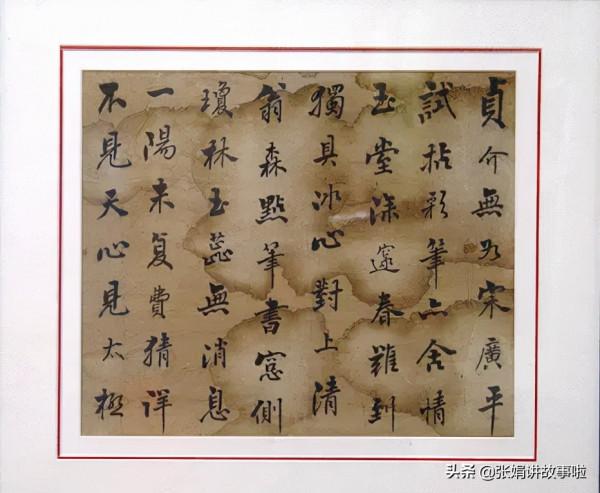 貞介無乃宋廣平
試拈彩筆亦含情
玉堂深邃春難到
獨具冰心對上清
翁森點筆書窓側
瓊林玉蕊無消息
一陽未復費猜詳
不見天心見太極
头条 @张娟讲故事啦